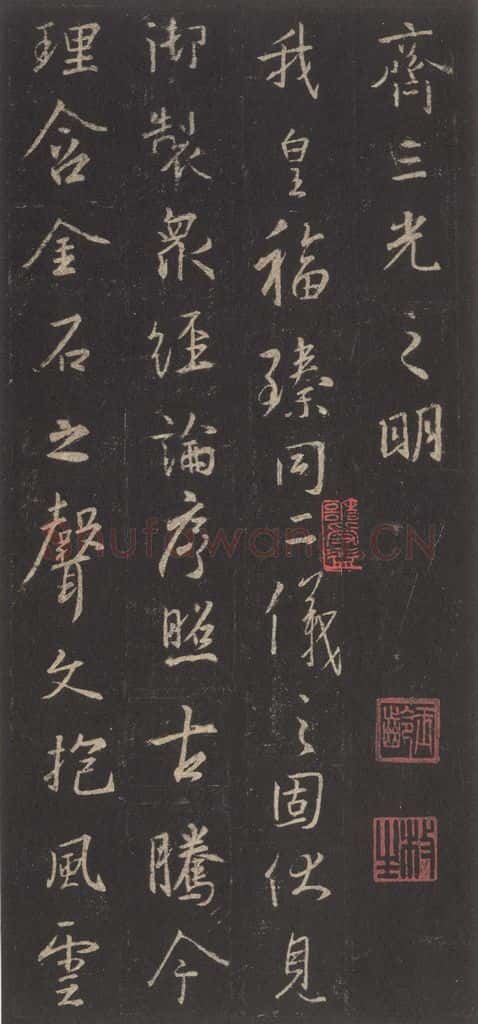 齊三光之明
我皇福臻同二儀之固伏見
御製衆經論序照古騰今
理含金石之聲文抱風雲